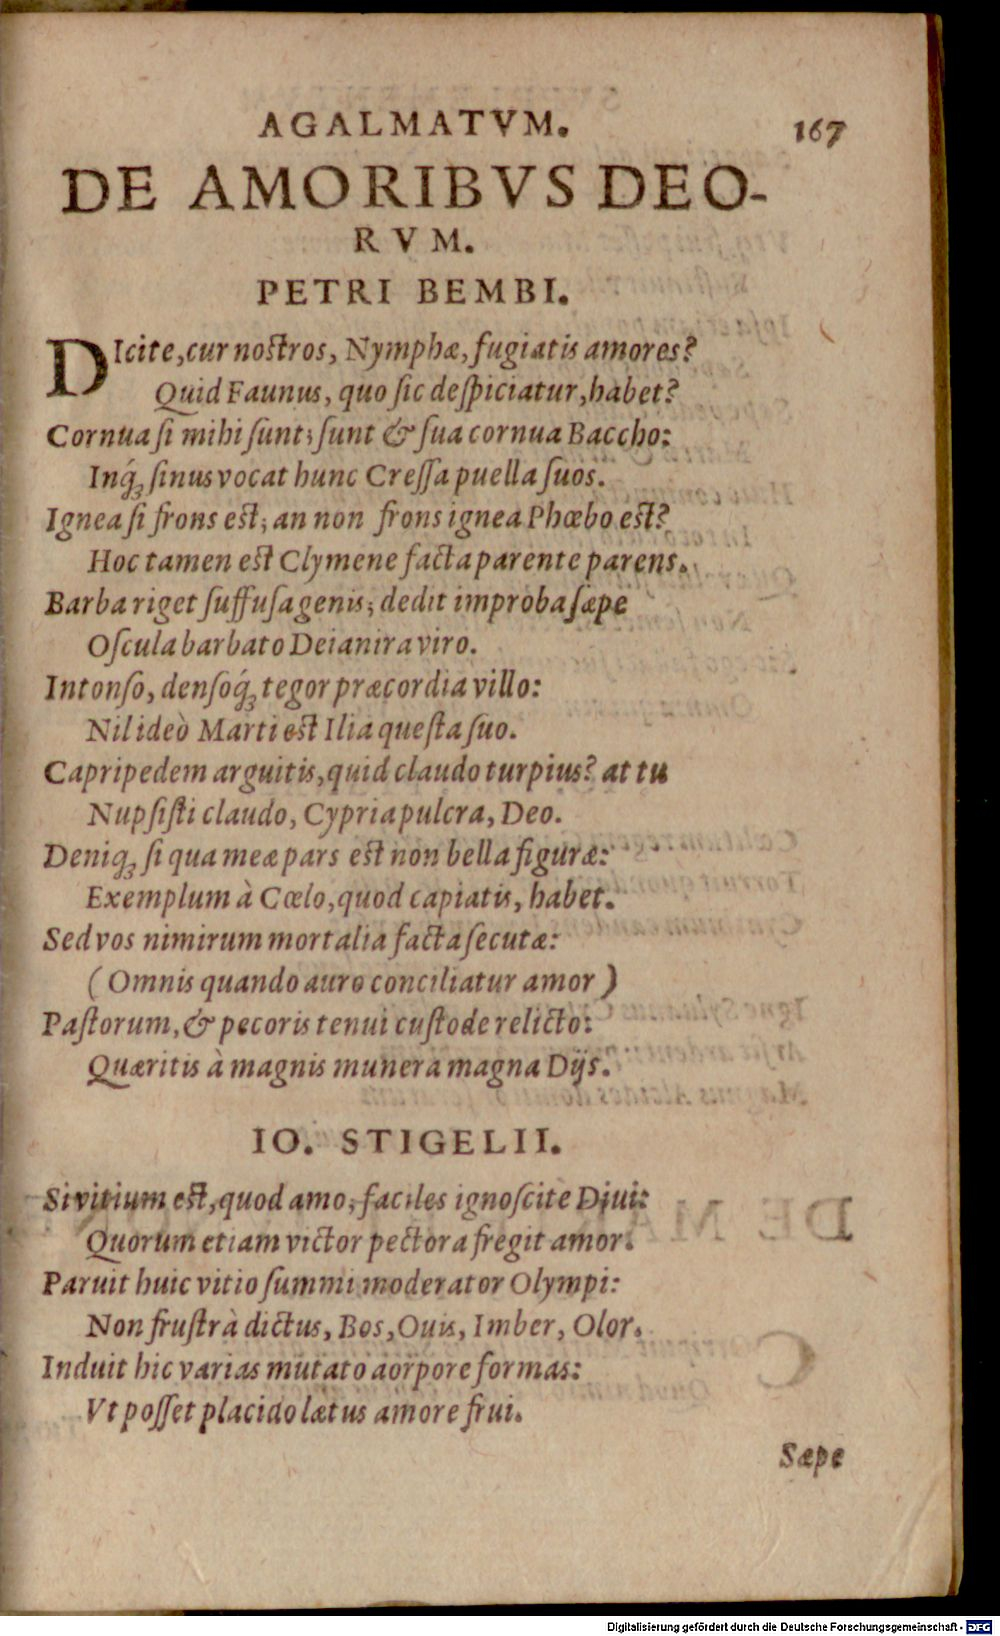 AGALMATVM. 167
DE AMORIBVS DEO-
RVM.
PETRI BEMBI.
DIcite, cur nostros, Nymphæ, fugiatis amores?
Quid Faunus, quo sic despiciatur, habet?
Cornua si mihi sunt; sunt & sua cornua Baccho:
Inq́ꝫ sinus vocat hunc Cressa puella suos.
Ignea si frons est; an non frons ignea Phœbo est?
Hoc tamen est Clymene facta parente parens.
Barba riget suffusa genis; dedit improba sæpe
Oscula barbato Deianira viro.
Intonso, densoq́ꝫ tegor præcordia villo:
Nil ideò Marti est Ilia questa suo.
Capripedem arguitis, quid claudo turpius? at tu
Nupsisti claudo, Cypria pulcra, Deo.
Deniqꝫ si qua meæ pars est non bella figuræ:
Exemplum à Cœlo, quod capiatis, habet.
Sed vos nimirum mortalia facta secutæ:
(Omnis quando auro conciliatur amor)
Pastorum, & pecoris tenui custode relicto:
Quæritis à magnis munera magna Dijs.
IO. STIGELII.
Si vitium est, quod amo; faciles ignoscite Diui:
Quorum etiam victor pectora fregit amor.
Paruit huic vitio summi moderator Olympi:
Non frustrà dictus, Bos, Ouis, Imber, Olor.
Induit hic varias mutato aorpore formas:
Vt posset placido lætus amore frui.
Sæpe
Digitalisierung gefördert durch die Deutsche Forschungsgemeinschaft - DFG